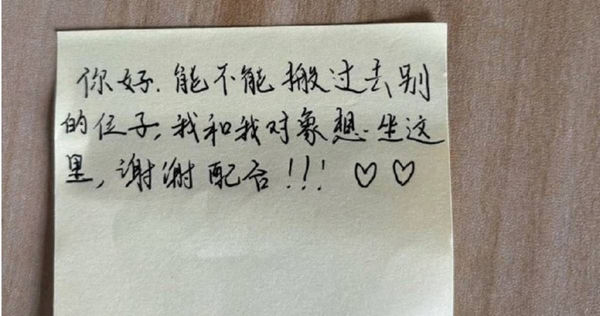 你好.能不能搬过去别
的位子,我和我对象想坐这
里,谢谢配合!!! ♡ ♡